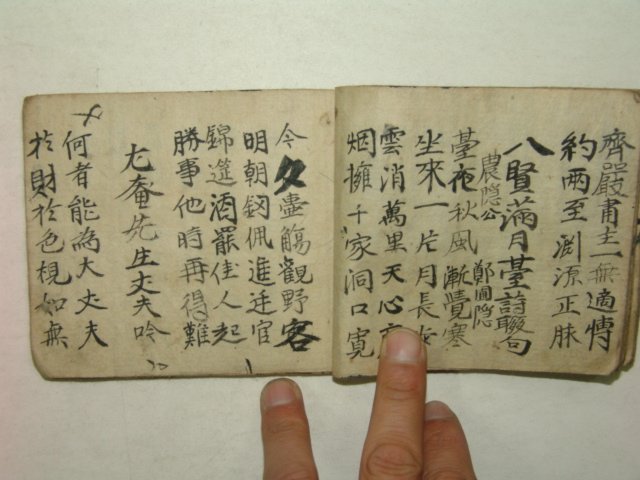 齊嚴肅主一無適博
約兩至淵源正脉
八賢滿月䑓詩聯句
農隐公
䑓夜秋風漸覺寒
鄭圃隐
坐來一片月長
雲消萬里天心
烟擁千家洞口寛
今夕壺觴觀野客
明朝劒佩進迁官
錦筵酒罷佳人起
勝事他時再得難
尤庵先生丈夫吟
何者能為大丈夫
於財於色視如無